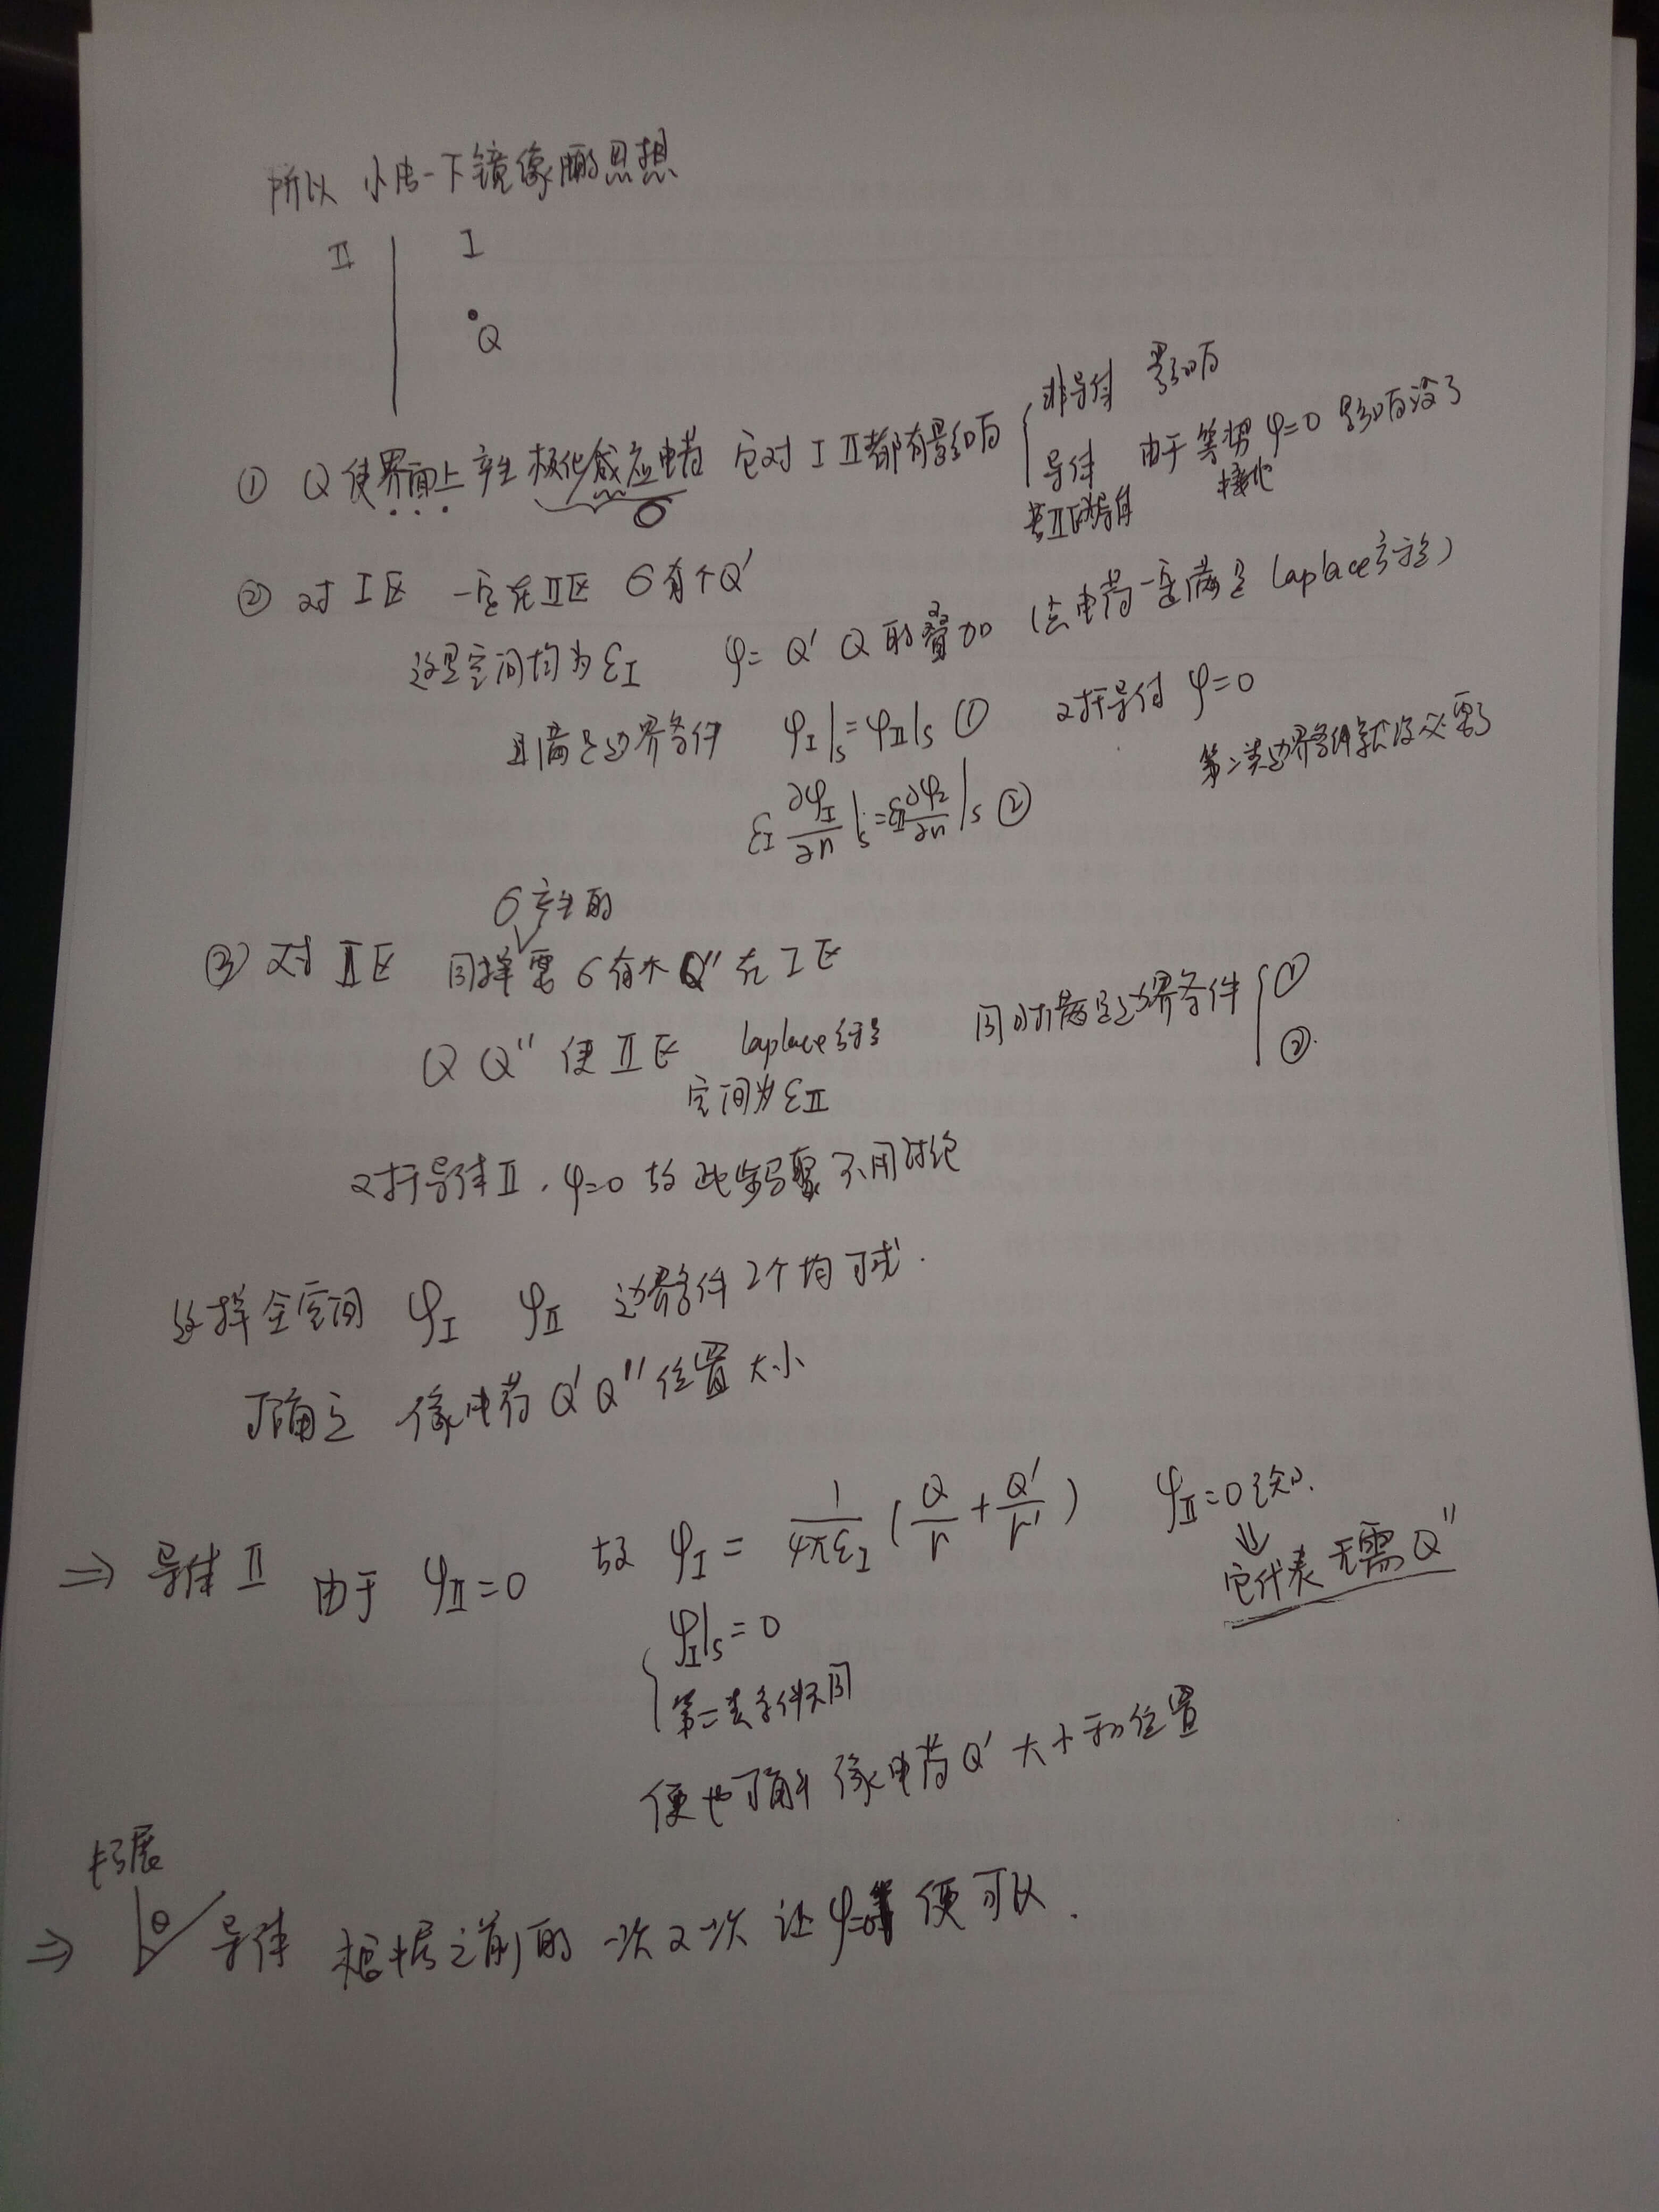 所以 小结一下镜像的思想
Ⅱ Ⅰ
Q
① Q 使界面上产生极化感应电荷 它对ⅠⅡ都有影响 { 非导体 影响
导体 由于等势φ=0 影响没了
若Ⅱ区为导体 接地
σ
② 对Ⅰ区 一定在Ⅱ区 σ有个Q′
这里空间均为εⅠ φ= Q′ Q 的叠加 (点电荷一定满足Laplace方程)
且满足边界条件 φⅠ|s=φⅡ|s ① 对于导体 φ=0
第二类边界条件就没必要了
εⅠ ∂φⅠ/∂n|s=εⅡ ∂φ2/∂n|s ②
σ产生的
③ 对Ⅱ区 同样需 σ有个Q″在Ⅰ区
Q Q″ 使Ⅱ区 Laplace方程 同时满足边界条件 { ①
②.
空间为εⅡ
对于导体Ⅱ, φ=0 故 此步骤不用讨论
这样全空间 φⅠ φⅡ 边界条件2个均可求.
可确定 像电荷Q′Q″位置大小
⇒ 导体Ⅱ 由于 φⅡ=0 故 φⅠ = 1/4πεⅠ (Q/r + Q′/r′) φⅡ=0已知.
⇓
它代表无需Q″
{ φⅠ|s=0
第二类条件不用
便也可解 像电荷Q′大小和位置
扩展
⇒ θ 导体 根据之前的 一次又一次 让φ=0 便可以.